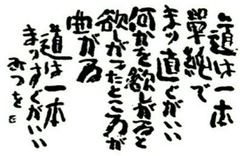 道は一本
單純で
まっ直ぐがいい
何かを欲しがると
欲しがったところが
曲がる
道は一本
まっすぐがいい
みつを